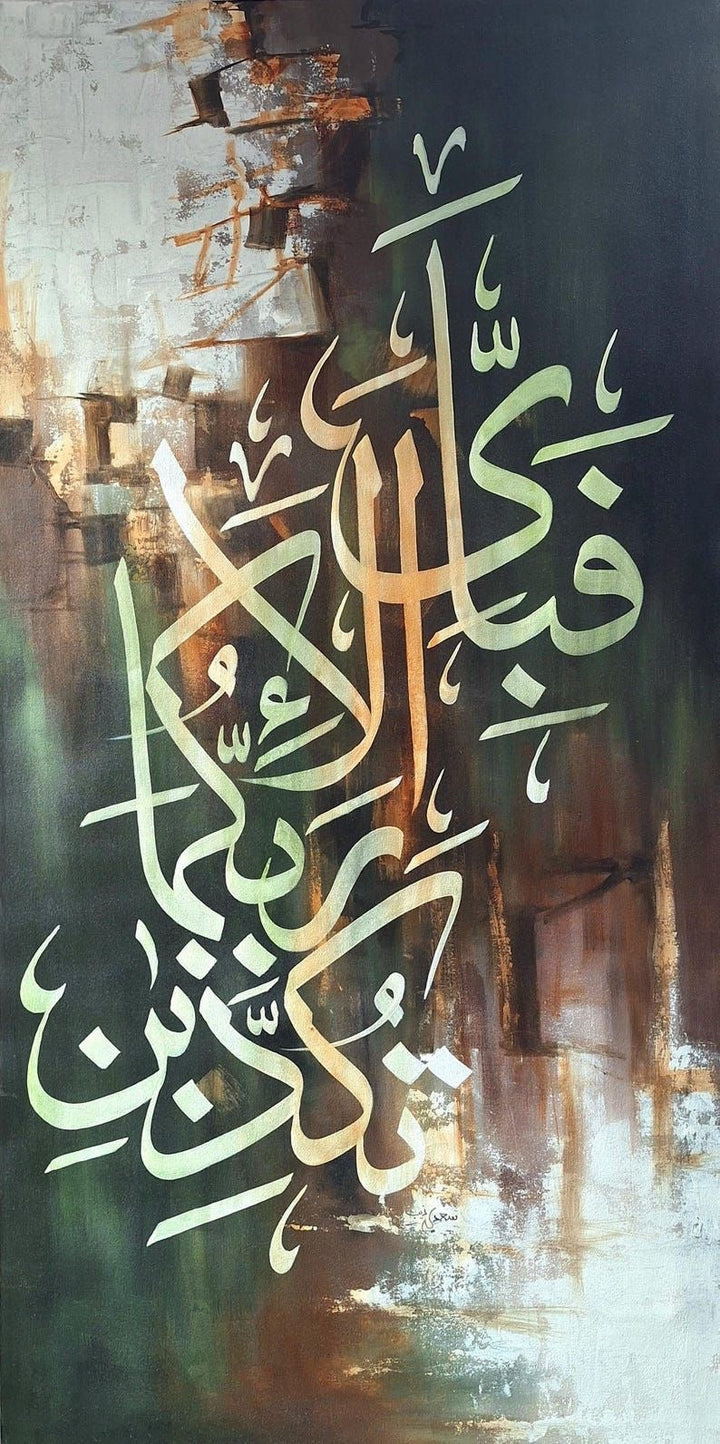 فَبِأَىِّ آلَاءِ
رَبِّكُمَا
تُكَذِّبَٰنِ